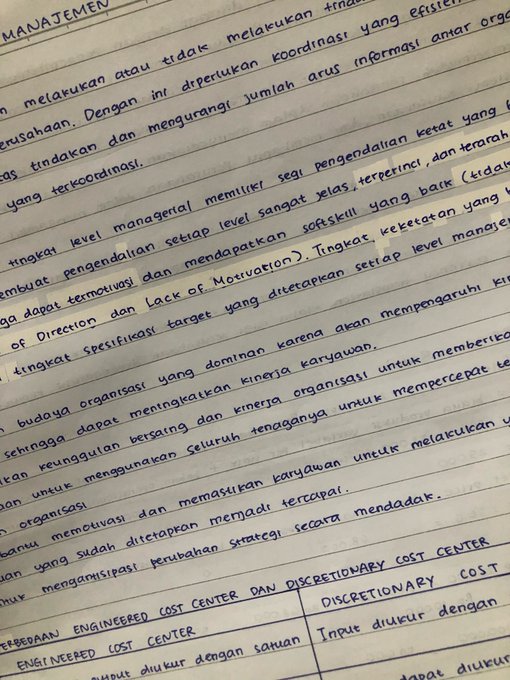 MANAJEMEN
melakukan atau tidak melakukan
erusahaan. Dengan ini diperlukan koordinasi yang efisien
tas tindakan dan mengurangi jumlah arus informasi antar
yang terkoordinasi.
tingkat level managerial memiliki segi pengendalian ketat yang
embuat pengendalian setiap level sangat jelas, terperinci, dan terarah
ga dapat termotivasi dan mendapatkan softskill yang baik (tidak
of Direction dan Lack of Motivation). Tingkat keketatan yang
tingkat spesifikasi target yang ditetapkan setiap level
budaya organisasi yang dominan karena akan mempengaruhi
sehingga dapat meningkatkan kinerja karyawan.
keunggulan bersaing dan kinerja organisasi untuk
untuk menggunakan seluruh tenaganya untuk mempercepat
organisasi
bantu memotivasi dan memastikan karyawan untuk melakukan
yang sudah ditetapkan menjadi tercapai.
mengantisipasi perubahan strategi secara mendadak.
ERBEDAAN ENGINEERED COST CENTER DAN DISCRETIONARY COST CENTER
ENGINEERED COST CENTER
DISCRETIONARY COST
diukur dengan satuan
Input diukur dengan
dapat diukur